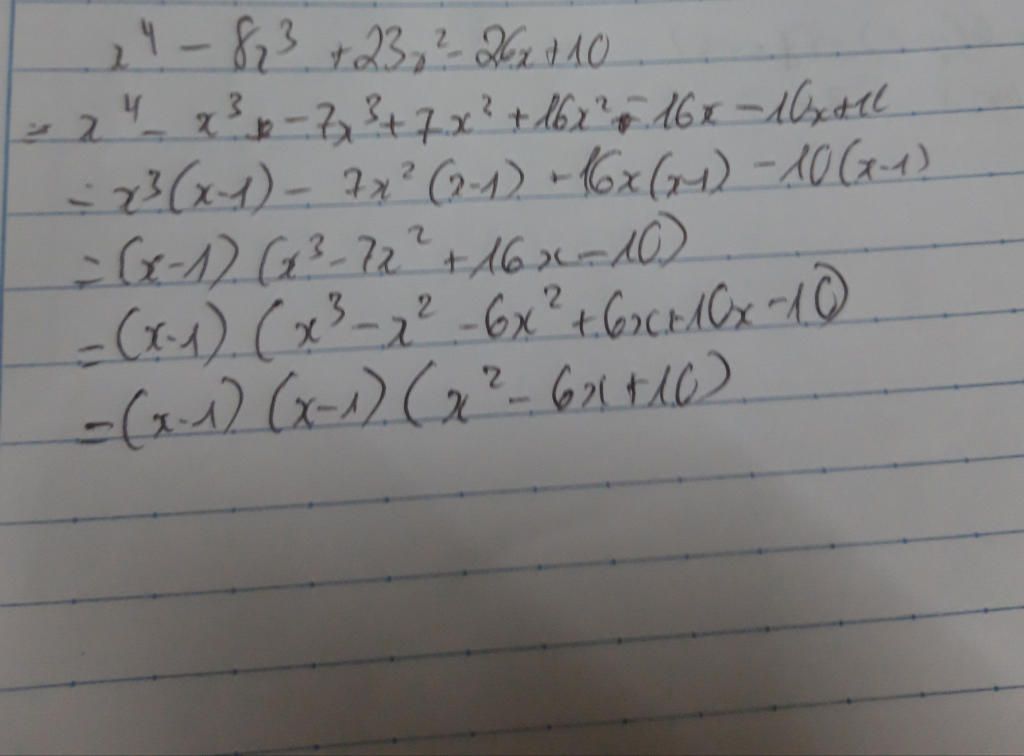 x⁴ - 8x³ + 23x² - 26x + 10
= x⁴ - x³ - 7x³ + 7x² + 16x² - 16x - 10x + 10
= x³(x-1) - 7x²(x-1) + 16x(x-1) - 10(x-1)
= (x-1)(x³ - 7x² + 16x - 10)
= (x-1)(x³ - x² - 6x² + 6x + 10x - 10)
= (x-1)(x-1)(x² - 6x + 10)